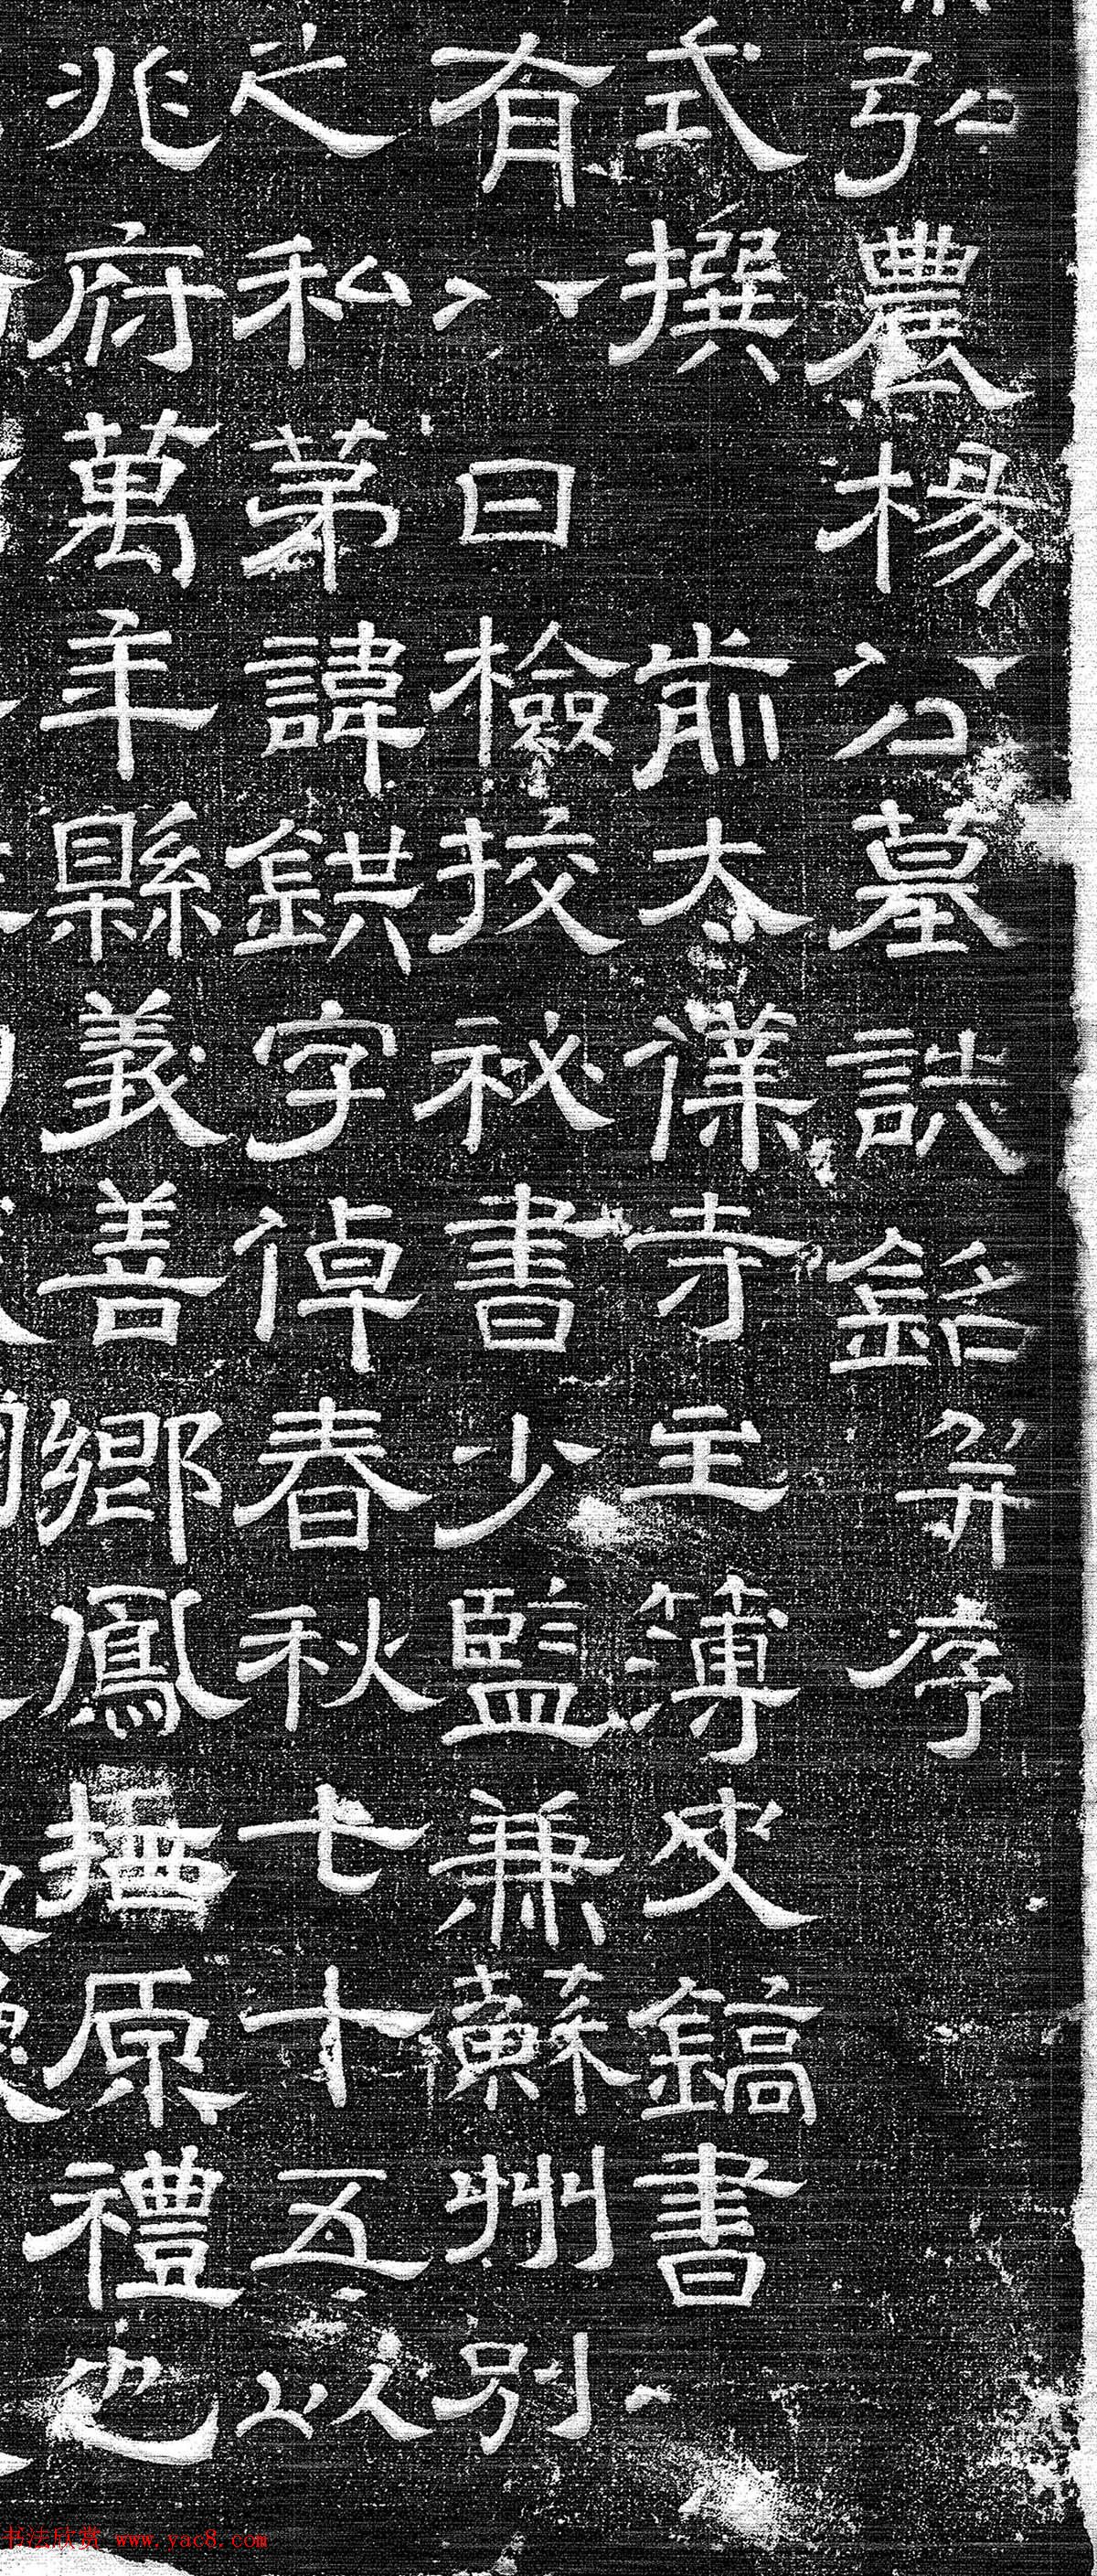 弘農楊公墓誌銘并序
式撰 前太僕寺主簿史鎬書
有八曰檢挍秘書少監兼蘇州別
之私第諱鉷字倬春秋七十五以
兆府萬年縣義善鄉鳳栖原禮也
书法欣赏 www.yac8.com